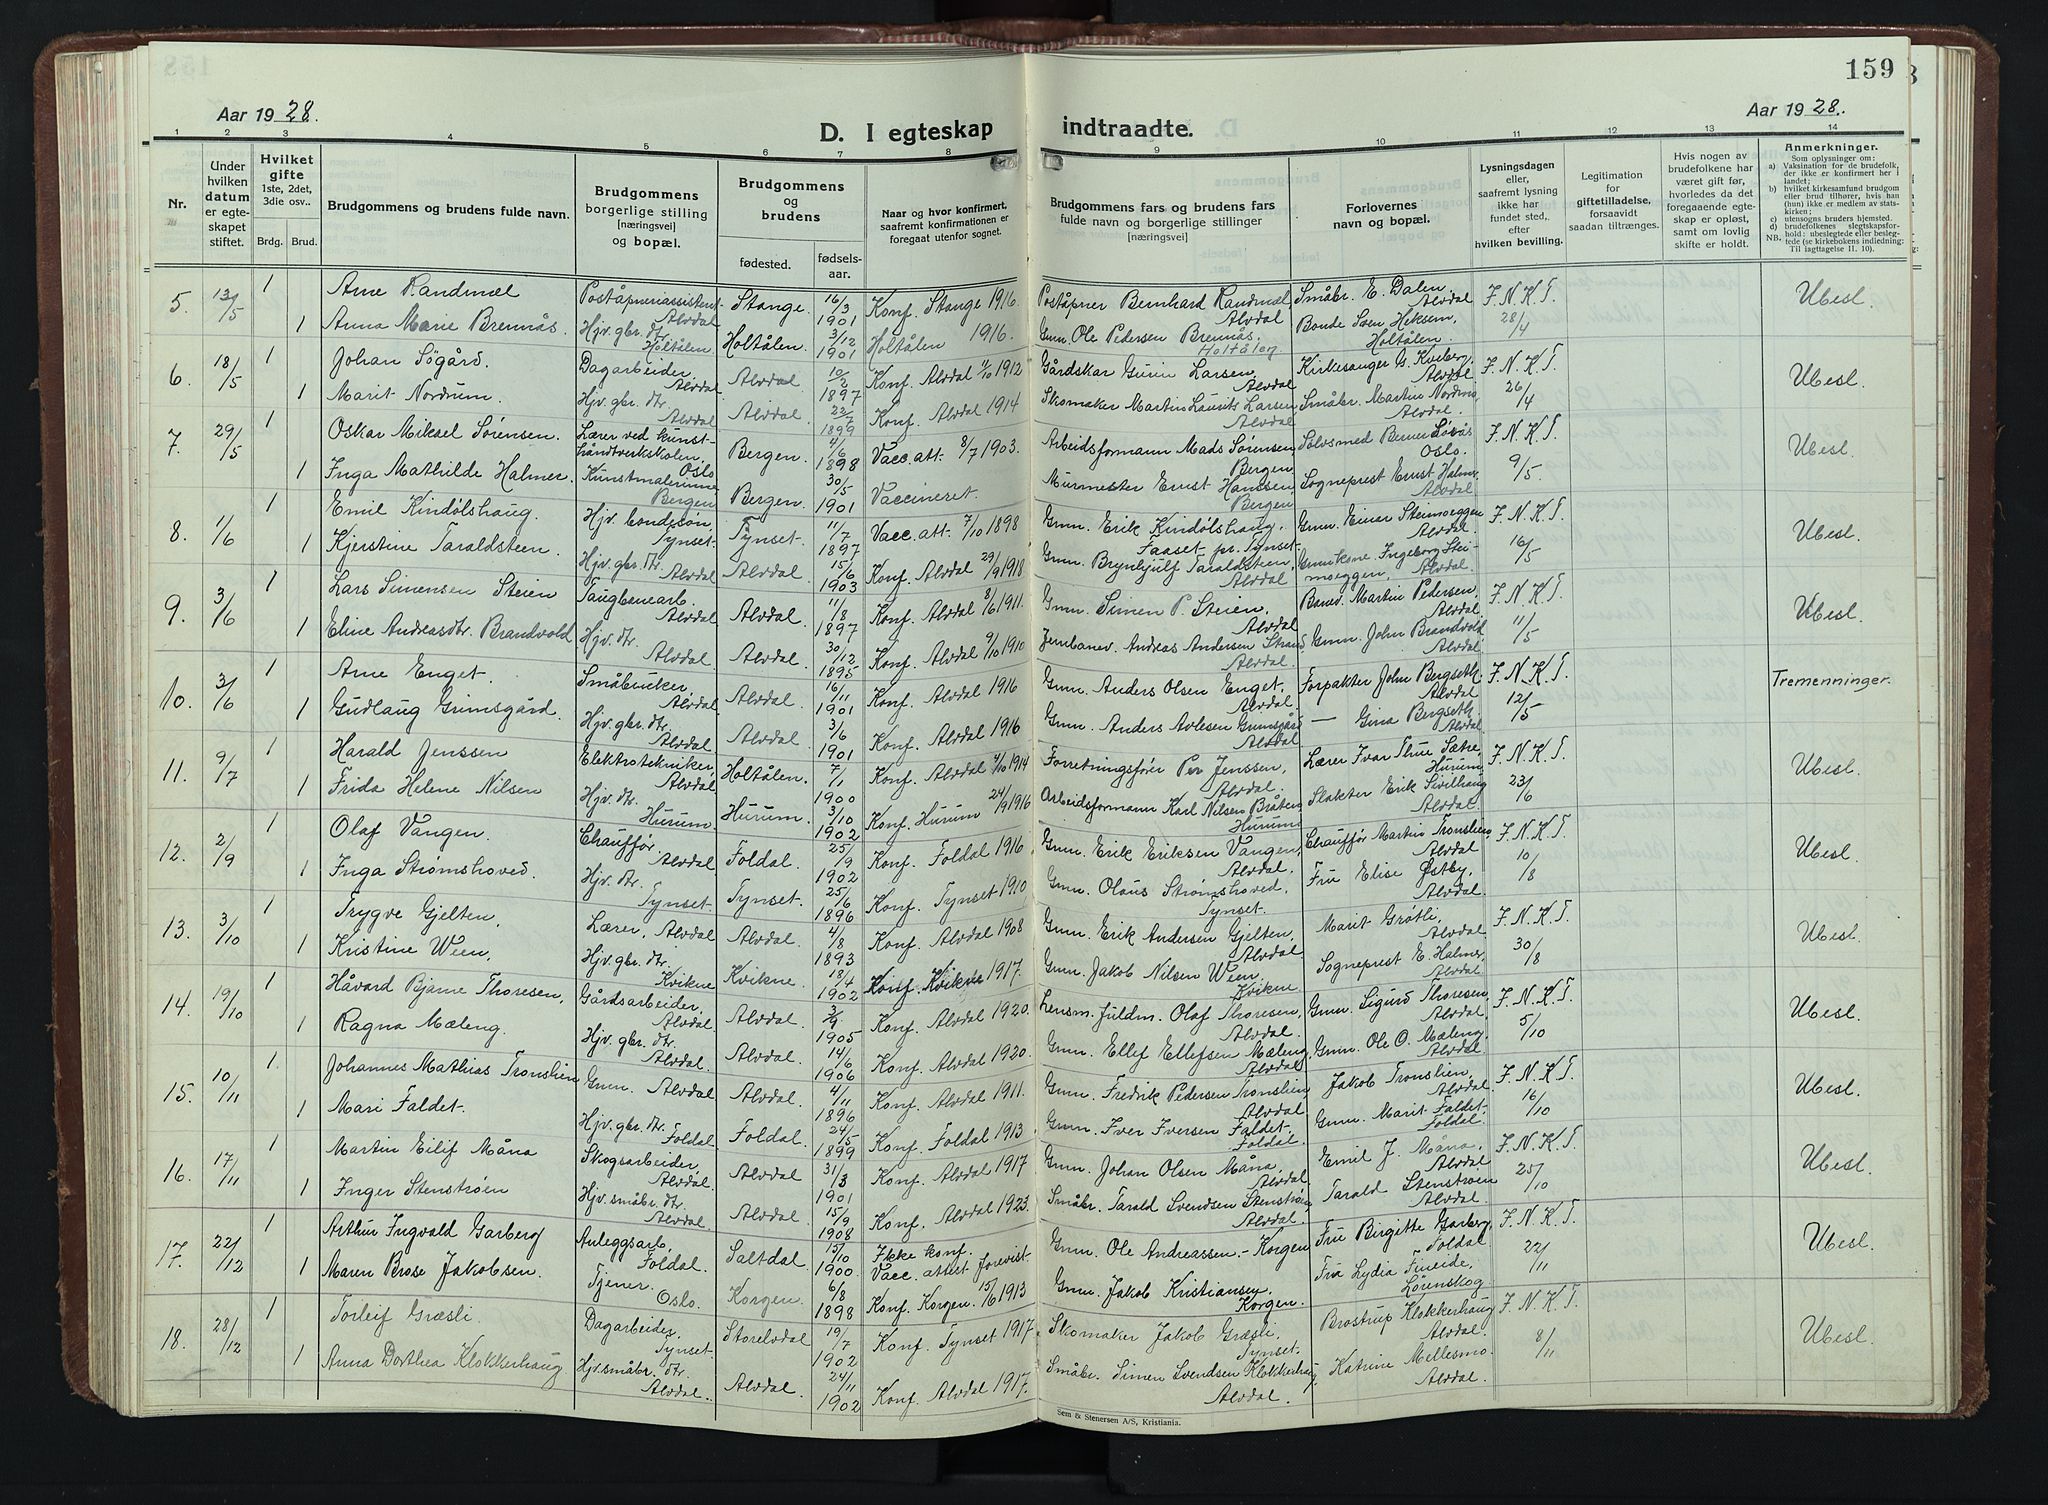 159
Aar 1928.
D. I egteskap
indtraadte.
Aar 1928.
1 2 3 4 5 6 7 8 9 10 11 12 13 14
Nr.
Under hvilken datum er egteskapet stiftet.
Hvilket gifte 1ste, 2det, 3die osv..
Brdg. Brud.
Brudgommens og brudens fulde navn.
Brudgommens borgerlige stilling [næringsvei] og bopæl.
Brudgommens og brudens
fødested. fødselsaar.
Naar og hvor konfirmert, saafremt konfirmationen er foregaat utenfor sognet.
Brudgommens fars og brudens fars fulde navn og borgerlige stillinger [næringsvei]
Forlovernes navn og bopæl.
Lysningsdagen eller, saafremt lysning ikke har fundet sted, efter hvilken bevilling.
Legitimation for giftetilladelse, forsaavidt saadan tiltrænges.
Hvis nogen av brudefolkene har været gift før, hvorledes da det foregaaende egteskap er opløst, samt om lovlig skifte er holdt.
Anmerkninger.
Som oplysninger om:
a) Vaksination for de brudefolk, der ikke er konfirmert her i landet;
b) hvilket kirkesamfund brudgom eller brud tilhører, hvis han (hun) ikke er medlem av statskirken;
c) utensogns bruders hjemsted.
d) brudefolkenes slegtskapsforhold: ubeslegtede eller beslegtede (se kirkebokens indledning: NB, Til iagttagelse II. 10).
5. 13/5 1 Arne Randmæl Poståpneriassistent Alvdal Stange 16/3 1901 Konf. Stange 1916. Poståpner Bernhard Randmæl Alvdal Småbr. E. Dalen. Alvdal F. N. K. T. 28/4 Ubesl.
1 Anna Marie Brennås. Hjv. gbr. dtr. Holtålen. Holtålen. 3/12 1901 Holtålen 1916. Gmn. Ole Pedersen Brennås Holtålen Bonde Sven Heksem, Holtålen.
6. 18/5 1 Johan Søgård. Dagarbeider, Alvdal Alvdal 10/2 1897 Konf. Alvdal 1/10 1912 Gårdskar Gunn Larsen, Alvdal Kirkesanger G. Kveberg, Alvdal F. N. K. T. 26/4 Ubesl.
1 Marit Nordrum. Hjv. gbr. dtr. Alvdal Alvdal 22/7 1899 Konf. Alvdal 1914 Skomaker Martin Laurits Larsen Alvdal Småbr. Martin Nordmo, Alvdal.
7. 29/5 1 Oskar Mikael Sørensen. Lærer ved kunst-håndverkskolen, Oslo Bergen. 4/6 1898 Vacc. att. 8/7 1903. Arbeidsformann Mads Sørensen Bergen Sølvsmed Berner Løvås Oslo. F. N. K. T. 9/5 Ubesl.
1 Inga Mathilde Halmer. Kunstmalerinne Bergen Bergen. 30/5 1901 Vaccineret. Murmester Ernst Hanssen, Bergen Sogneprest Ernst Halmer, Alvdal
8. 1/6 1 Emil Kindølshaug. Hjv. bondesøn, Tynset. Tynset. 11/7 1897 Vacc. att. 7/10 1898 Gmn. Erik Kindølshaug, Faaset pr. Tynset. Gmn. Einar Steimoeggen Alvdal F. N. K. T. 16/5 Ubesl.
1 Kjerstine Taraldsteen. Hjv. gbr. dtr. Alvdal Alvdal. 15/6 1903 Konf. Alvdal 29/9 1918 Gmn. Brynhjulf Taraldsteen, Alvdal Gmnkone Ingeborg Steimoeggen, Alvdal.
9. 3/6 1 Lars Simensen Steien Taugbanearb. Alvdal Alvdal. 11/8 1897 Konf. Alvdal 8/6 1911. Gmn. Simen P. Steien, Alvdal Banev. Martin Pedersen, Alvdal F. N. K. T. 11/5 Ubesl.
1 Eline Andreasdtr. Brandvold Hjv. dtr. Alvdal Alvdal. 30/12 1895 Konf. Alvdal 9/10 1910 Jernbanev. Andreas Andersen Strand Alvdal. Gmn. John Brandvold Alvdal
10. 3/6 1 Arne Enget. Småbruker, Alvdal Alvdal. 16/11 1901 Konf. Alvdal 1916 Gmn. Anders Olsen Enget, Alvdal. Forpakter John Bergseth Alvdal F. N. K. T. 12/5 Tremenninger.
1 Gudlaug Grimsgård. Hjv. gbr. dtr. Alvdal Alvdal 3/6 1901 Konf. Alvdal 1916 Gmn. Anders Avlesen Grimsgård Alvdal — Gina Bergseth. Alvdal
11. 9/7 1 Harald Jenssen Elektrotekniker, Alvdal Holtålen. 7/1 1900 Konf. Alvdal 4/10 1914 Forretningsfører Per Jenssen, Alvdal. Lærer Ivar Thue Sætre, Hurum F. N. K. T. 23/6 Ubesl.
1 Frida Helene Nilsen Hjv. dtr. Hurum Hurum. 3/10 1902 Konf. Hurum 24/9 1916 Arbeidsformann Karl Nilsen Bråten Hurum Slakter Erik Sivilhaug Alvdal.
12. 2/9 1 Olaf Vangen. Chauffør, Alvdal Foldal. 25/9 1902 Konf. Foldal 1916 Gmn. Erik Eriksen Vangen, Alvdal. Chauffør Martin Tronslien, Alvdal F. N. K. T. 10/8 Ubesl.
1 Inga Strømshoved. Hjv. dtr. Tynset. Tynset. 25/6 1896 Konf. Tynset 1910 Gmn. Olaus Strømshoved, Tynset. Fru Elise Østby, Alvdal.
13. 3/10 1 Trygve Gjelten, Lærer, Alvdal Alvdal. 4/8 1893 Konf. Alvdal 1908 Gmn. Erik Andersen Gjelten, Alvdal Marit Grøtli, Alvdal. F. N. K. T. 30/8 Ubesl.
1 Kristine Wien, Hjv. gbr. dtr. Kvikne Kvikne 18/4 1902 Konf. Kvikne 1917. Gmn. Jakob Nilsen Wien. Kvikne Sogneprest E. Halmer, Alvdal.
14. 19/10 1 Håvard Bjarne Thoresen, Gårdsarbeider, Alvdal. Alvdal. 3/9 1905 Konf. Alvdal 1920. Lensm. fuldm. Olaf Thoresen, Alvdal. Gmn. Sigurd Thoresen, Alvdal. F. N. K. T. 5/10 Ubesl.
1 Ragna Mæleng. Hjv. gbr. dtr. Alvdal. Alvdal. 14/6 1906 Konf. Alvdal 1920. Gmn. Ellef Ellefsen Mæleng, Alvdal Gmn. Ole O. Mæleng, Alvdal
15. 10/11 1 Johannes Mathias Tronslien Gmn. Alvdal Alvdal. 4/11 1896 Konf. Alvdal 1911. Gmn. Fredrik Pedersen Tronslien Alvdal Jakob Tronslien, Alvdal F. N. K. T. 16/10 Ubesl.
1 Mari Faldet. Hjv. gbr. dtr. Foldal Foldal. 24/5 1899 Konf. Foldal 1913 Gmn. Iver Iversen Faldet, Foldal. Gmn. Marit Faldet. Foldal
16. 17/11 1 Martin Eilif Måna Skogsarbeider, Alvdal. Alvdal 31/3 1901 Konf. Alvdal 1917 Gmn. Johan Olsen Måna, Alvdal Emil J. Måna, Alvdal F. N. K. T. 25/10 Ubesl.
1 Inger Stenstrøen Hjv. småbr. dtr. Alvdal. Alvdal 15/9 1908 Konf. Alvdal 1923. Småbr. Tarald Svendsen Stenstrøen Alvdal. Tarald Stenstrøen Alvdal.
17. 22/12 1 Arthur Ingvald Garberg Anleggsarb. Foldal. Saltdal 15/10 1900. Ikke konf. Vacc. attest forevist. Gmn. Ole Andreassen. – Korgen Fru Birgitte Garberg, Foldal F. N. K. T. 22/11 Ubesl.
1 Maren Brose Jakobsen. Tjener. Oslo. Korgen. 6/8 1898 Konf. Korgen. 15/6 1913 Gmn. Jakob Kristiansen, Korgen. Fru Lydia Fineide, Lørenskog
18. 28/12 1 Torleif Græsli. Dagarbeider, Tynset. Storelvdal 19/7 1902 Konf. Tynset 1917. Skomaker Jakob Græsli, Tynset. Brostrup Klokkerhaug Alvdal. F. N. K. T. 8/11 Ubesl.
1 Anna Dorthea Klokkerhaug Hjv. småbr. dtr. Alvdal. Alvdal. 24/11 1902 Konf. Alvdal 1917. Småbr. Simen Svendsen Klokkerhaug, Alvdal. Katrine Mellesmo. Alvdal.
Sem & Stenersen A/S, Kristiania.